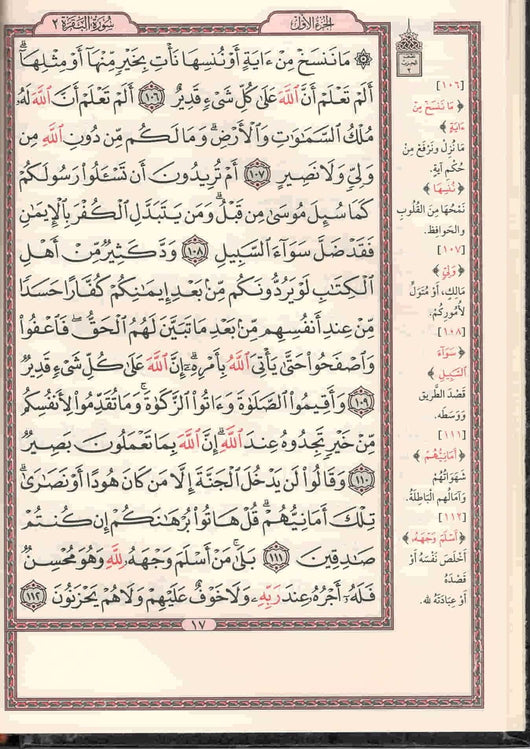 الجزء الأول
سورة البقرة ٢
۞ مَا نَنسَخْ مِنْ ءَايَةٍ أَوْ نُنسِهَا نَأْتِ بِخَيْرٍ مِّنْهَآ أَوْ مِثْلِهَآ ۗ
أَلَمْ تَعْلَمْ أَنَّ ٱللَّهَ عَلَىٰ كُلِّ شَىْءٍ قَدِيرٌ ١٠٦ أَلَمْ تَعْلَمْ أَنَّ ٱللَّهَ لَهُۥ
مُلْكُ ٱلسَّمَـٰوَٰتِ وَٱلْأَرْضِ ۗ وَمَا لَكُم مِّن دُونِ ٱللَّهِ مِن
وَلِىٍّ وَلَا نَصِيرٍ ١٠٧ أَمْ تُرِيدُونَ أَن تَسْـَٔلُوا۟ رَسُولَكُمْ
كَمَا سُئِلَ مُوسَىٰ مِن قَبْلُ ۗ وَمَن يَتَبَدَّلِ ٱلْكُفْرَ بِٱلْإِيمَـٰنِ
فَقَدْ ضَلَّ سَوَآءَ ٱلسَّبِيلِ ١٠٨ وَدَّ كَثِيرٌ مِّنْ أَهْلِ
ٱلْكِتَـٰبِ لَوْ يَرُدُّونَكُم مِّنۢ بَعْدِ إِيمَـٰنِكُمْ كُفَّارًا حَسَدًا
مِّنْ عِندِ أَنفُسِهِم مِّنۢ بَعْدِ مَا تَبَيَّنَ لَهُمُ ٱلْحَقُّ ۖ فَٱعْفُوا۟
وَٱصْفَحُوا۟ حَتَّىٰ يَأْتِىَ ٱللَّهُ بِأَمْرِهِۦٓ ۗ إِنَّ ٱللَّهَ عَلَىٰ كُلِّ شَىْءٍ قَدِيرٌ
١٠٩ وَأَقِيمُوا۟ ٱلصَّلَوٰةَ وَءَاتُوا۟ ٱلزَّكَوٰةَ ۚ وَمَا تُقَدِّمُوا۟ لِأَنفُسِكُم
مِّنْ خَيْرٍ تَجِدُوهُ عِندَ ٱللَّهِ ۗ إِنَّ ٱللَّهَ بِمَا تَعْمَلُونَ بَصِيرٌ
١١٠ وَقَالُوا۟ لَن يَدْخُلَ ٱلْجَنَّةَ إِلَّا مَن كَانَ هُودًا أَوْ نَصَـٰرَىٰ ۗ
تِلْكَ أَمَانِيُّهُمْ ۗ قُلْ هَاتُوا۟ بُرْهَـٰنَكُمْ إِن كُنتُمْ
صَـٰدِقِينَ ١١١ بَلَىٰ مَنْ أَسْلَمَ وَجْهَهُۥ لِلَّهِ وَهُوَ مُحْسِنٌ
فَلَهُۥٓ أَجْرُهُۥ عِندَ رَبِّهِۦ وَلَا خَوْفٌ عَلَيْهِمْ وَلَا هُمْ يَحْزَنُونَ ١١٢
١٧
[١٠٦]
﴿ مَا نَنسَخْ مِنْ
ءَايَةٍ ﴾
مَا نُزِلْ وَنَرْفَعْ مِنْ
حُكْمِ آيَةٍ.
﴿ نُنسِهَا ﴾
نَمْحُهَا مِنَ القُلُوبِ
وَالحَوَافِظِ.
[١٠٧]
﴿ وَلِىٍّ ﴾
مَالِكٍ، أَوْ مُتَوَلٍّ
لِأُمُورِكُمْ.
[١٠٨]
﴿ سَوَآءَ
ٱلسَّبِيلِ ﴾
قَصْدَ الطَّرِيقِ
وَوَسَطَهُ.
[١١١]
﴿ أَمَانِيُّهُمْ ﴾
شَهَوَاتُهُمْ
وَآمَالُهُم البَاطِلَةُ.
[١١٢]
﴿ أَسْلَمَ وَجْهَهُۥ ﴾
أَخْلَصَ نَفْسَهُ أَوْ
قَصْدَهُ
أَوْ عِبَادَتَهُ لله.